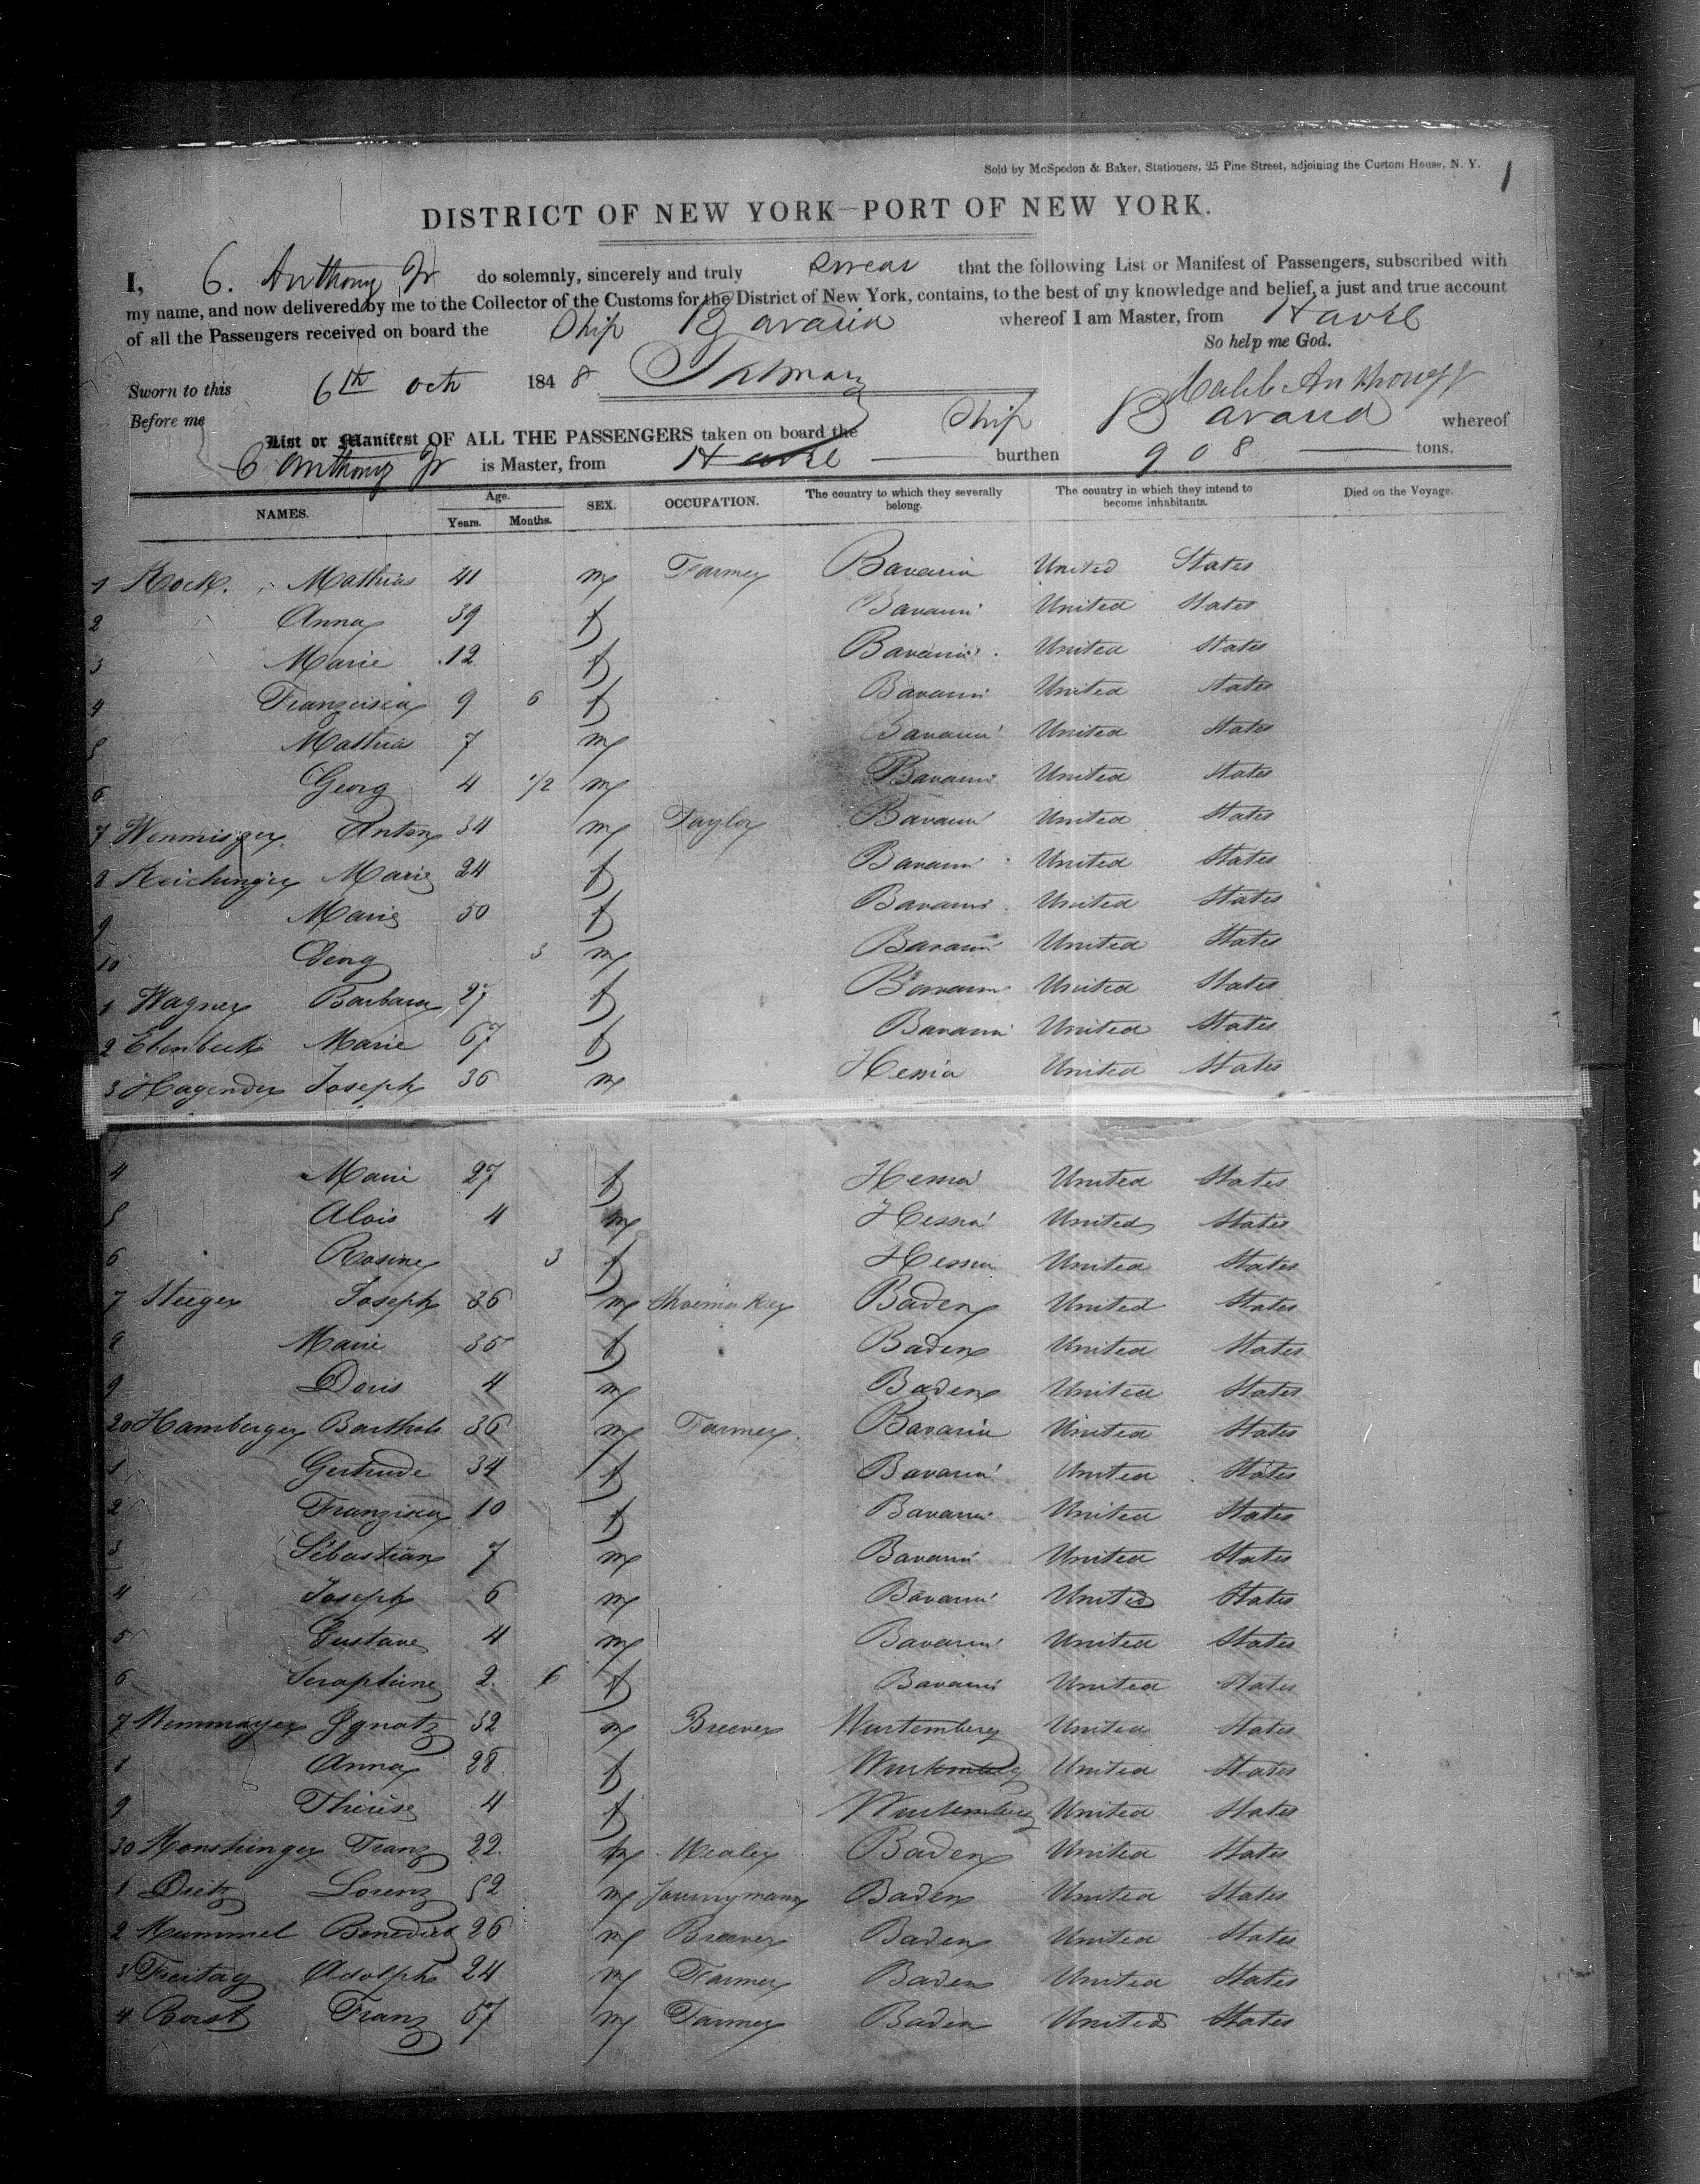 Sold by McSpedon & Baker, Stationers, 25 Pine Street, adjoining the Custom House, N. Y.
1
DISTRICT OF NEW YORK—PORT OF NEW YORK.
I, C. Anthony Jr do solemnly, sincerely and truly swear that the following List or Manifest of Passengers, subscribed with
my name, and now delivered by me to the Collector of the Customs for the District of New York, contains, to the best of my knowledge and belief, a just and true account
of all the Passengers received on board the Ship Bavaria whereof I am Master, from Havre
So help me God.
Sworn to this 6th Oct 1848 Caleb Anthony Jr
Before me
List or Manifest OF ALL THE PASSENGERS taken on board the Ship Bavaria whereof
C Anthony Jr is Master, from Havre burthen 908 tons.
NAMES. Age. Years. Months. SEX. OCCUPATION. The country to which they severally belong. The country in which they intend to become inhabitants. Died on the Voyage.
1 Mathias 41 m Farmer Bavaria United States
2 Anna 39 f Bavaria United States
3 Marie 12 f Bavaria United States
4 Franzisca 9 6 f Bavaria United States
5 Mathia 7 m Bavaria United States
6 Georg 4 1/2 m Bavaria United States
7 Anton 34 m Taylor Bavaria United States
8 Reichinger Marie 24 f Bavaria United States
9 Marie 50 f Bavaria United States
10 Georg 3 m Bavaria United States
1 Wagner Barbara 27 f Bavaria United States
2 Ebenbeck Marie 67 f Bavaria United States
3 Hagender Joseph 36 m Hessia United States
4 Marie 27 f Hessia United States
5 Alois 4 m Hessia United States
6 Rosine 3 f Hessia United States
7 Steeger Joseph 36 m Shoemaker Baden United States
8 Marie 35 f Baden United States
9 Doris 4 m Baden United States
20 Hamberger Barthol 36 m Farmer Bavaria United States
1 Gertrude 34 f Bavaria United States
2 Franzisca 10 f Bavaria United States
3 Sebastian 7 m Bavaria United States
4 Joseph 6 m Bavaria United States
5 Gustave 4 m Bavaria United States
6 Seraphine 2 6 f Bavaria United States
7 Wemmayer Ignatz 32 m Brewer Wurtemberg United States
8 Anna 28 f Wurtemberg United States
9 Thérèse 4 f Wurtemberg United States
30 Franz 22 m Baden United States
1 Dietz Lorenz 52 m Journymann Baden United States
2 Hummel Benedict 26 m Brewer Baden United States
3 Freitag Adolph 24 m Farmer Baden United States
4 Borst Franz 57 m Farmer Baden United States